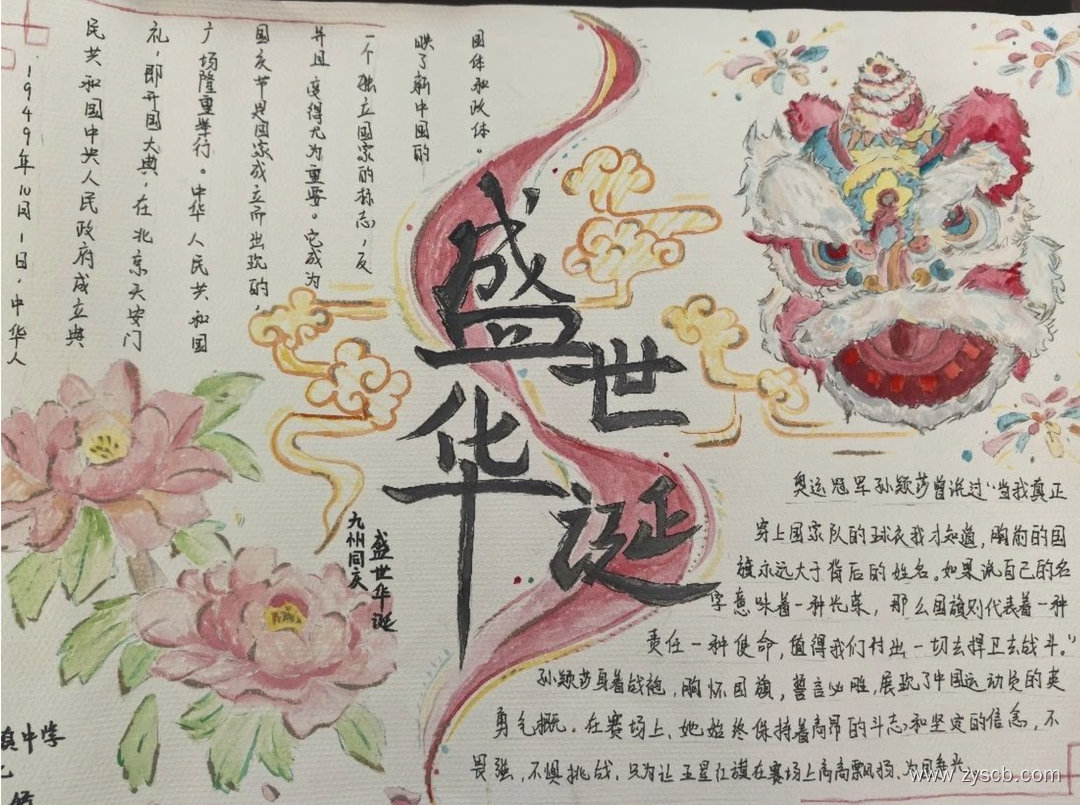 1949年10月1日，中华人
民共和国中央人民政府成立典
礼，即开国大典，在北京天安门
广场隆重举行。中华人民共和国
国庆节是国家成立而出现的，
并且变得尤为重要。它成为
一个独立国家的标志，反
映了新中国的
国体和政体。
盛世华诞
盛世华诞
九州同庆
奥运冠军孙颖莎曾说过“当我真正
穿上国家队的球衣我才知道，胸前的国
旗永远大于背后的姓名。如果说自己的名
字意味着一种光荣，那么国旗则代表着一种
责任一种使命，值得我们付出一切去捍卫去战斗。”
孙颖莎身着战袍，胸怀国旗，誓言必胜，展现了中国运动员的英
勇气概。在赛场上，她始终保持着高昂的斗志和坚定的信念，不
畏强，不惧挑战，只为让五星红旗在赛场上高高飘扬，为国争光
中学
www.zyscb.com